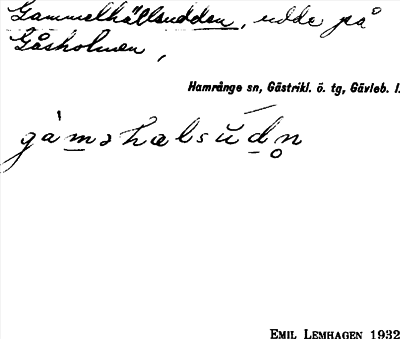 Gammelhällsudden, udde på
Gåsholmen,
Hamrånge sn, Gästrikl. ö. tg, Gävleb. l.
gàməhælsŭdn̥
EMIL LEMHAGEN 1932